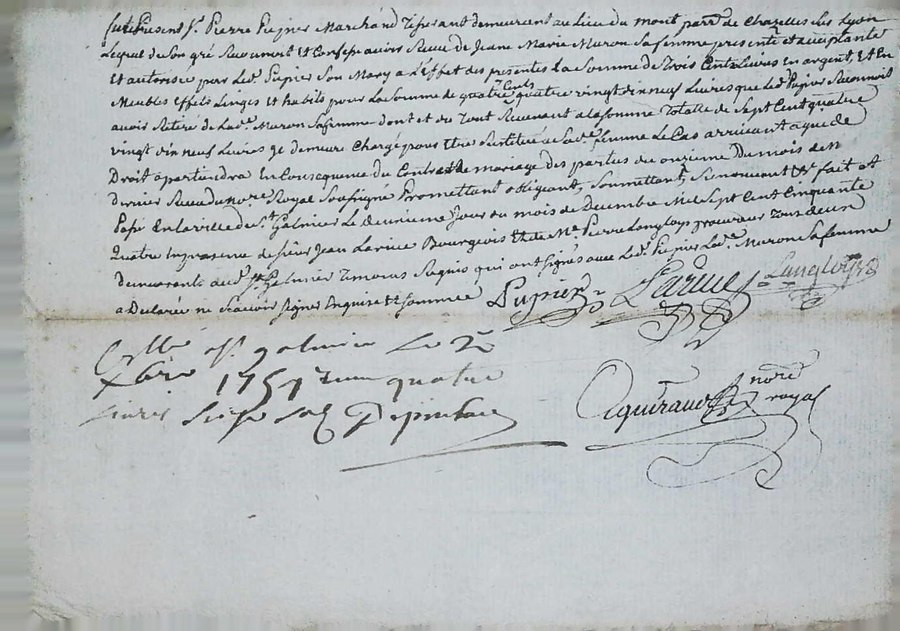 fut Present Sr. Pierre Pupier Marchand Tisserant demeurent au Lieu du mont parr.e de Chazelles Les Lyon
Lequel de Son gré Reconnoit et Confesse avoir Receu de Jeane Marie Muron Sa femme presente et acceptante
Et autorisée par Led. Pupier Son Mary a L'Effet des presentes La Somme de Trois Cents Livres en argent, Et En
Meubles Effets Linges Et habits pour La Somme de quatre Cents quatre vingt dix neuf Livres que Led. Pupier Reconnoit
avoir Retiré de Lad.e Muron Sa femme dont et du Tout Revenant a la Somme Totalle de Sept Cent quatre
vingt dix neuf Livres Je demeure Chargé pour Etre Restitué a Sad.e femme Le Cas arrivant a qui de
Droit apartiendra En Consequance du Contrat de mariage des parties du onzieme Du mois de
dernier Receu du no.re Royal Soussigné Promettant obligeant, Soumettant, Renonceant &c fait et
Passé En la ville de St. Galmier Le deuxieme Jour du mois de Decembre Mil Sept Cent Cinquante
Quatre En presence de Sieur Jean Larüe Bourgeois Et de Me. Pierre Langloys procureur Tous deux
demeurants aud. St. Galmier Temoins Requis qui ont Signés avec Led. Pupier Lad.e Muron Sa femme
a Declarée ne Scavoir Signer Enquise Et Sommée
Pupier Larüe Langloys
Cllé a St. galmier Le 2e
Xbre 1754 quatre
livres
Aguiraud no.re royal